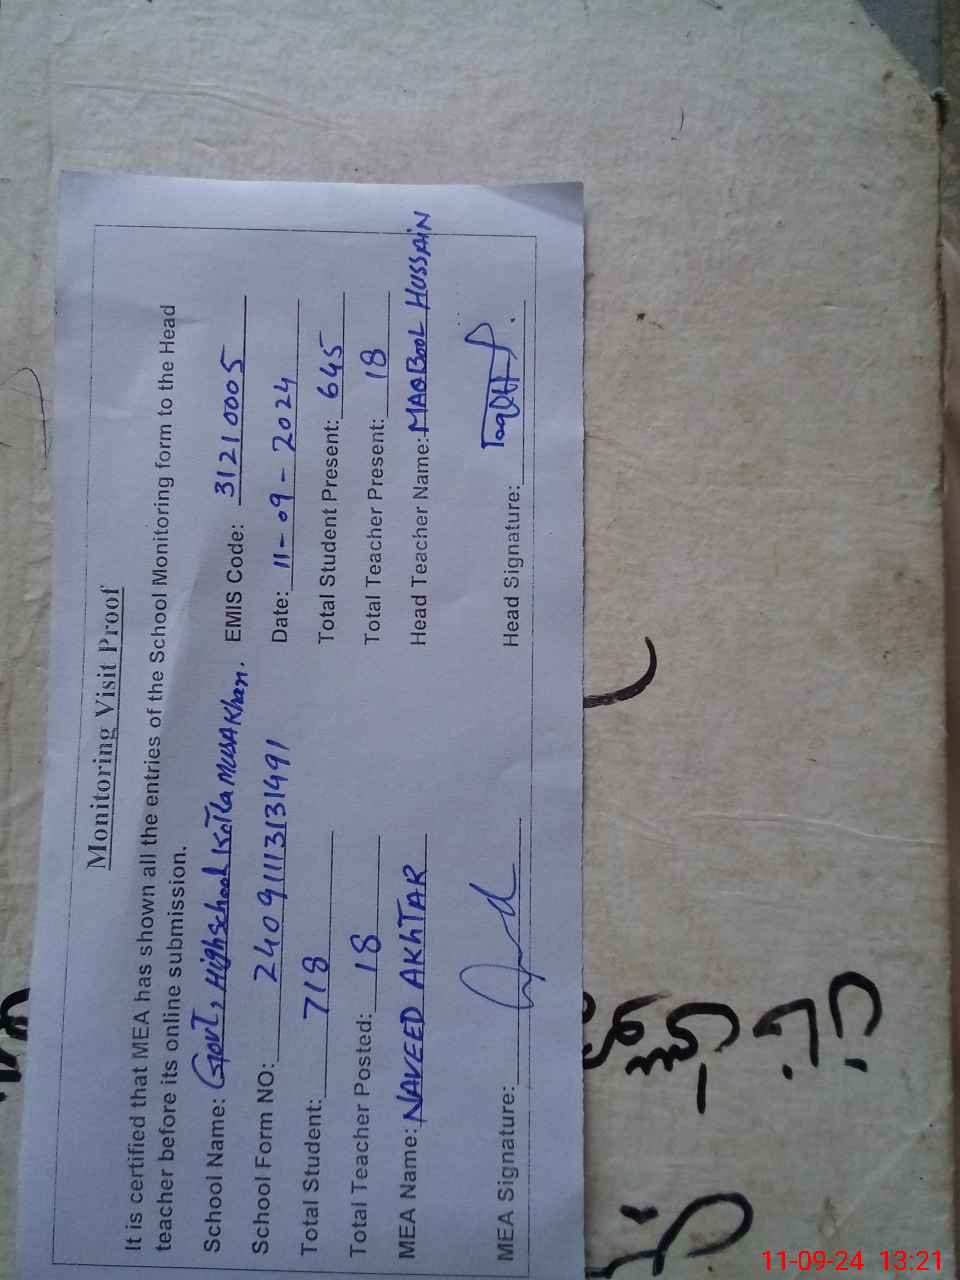 Monitoring Visit Proof
It is certified that MEA has shown all the entries of the School Monitoring form to the Head
teacher before its online submission.
School Name: Govt, High school Kotla Musa Khan. EMIS Code: 31210005
School Form NO: 24091113131491 Date: 11-09-2024
Total Student: 718 Total Student Present: 645
Total Teacher Posted: 18 Total Teacher Present: 18
MEA Name: NAVEED AKHTAR Head Teacher Name: MAQBOOL HUSSAIN
MEA Signature: Head Signature:
11-09-24 13:21